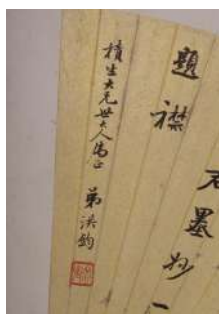 題襟
石墨妙一
積生大兄世大人屬正
弟洪鈞